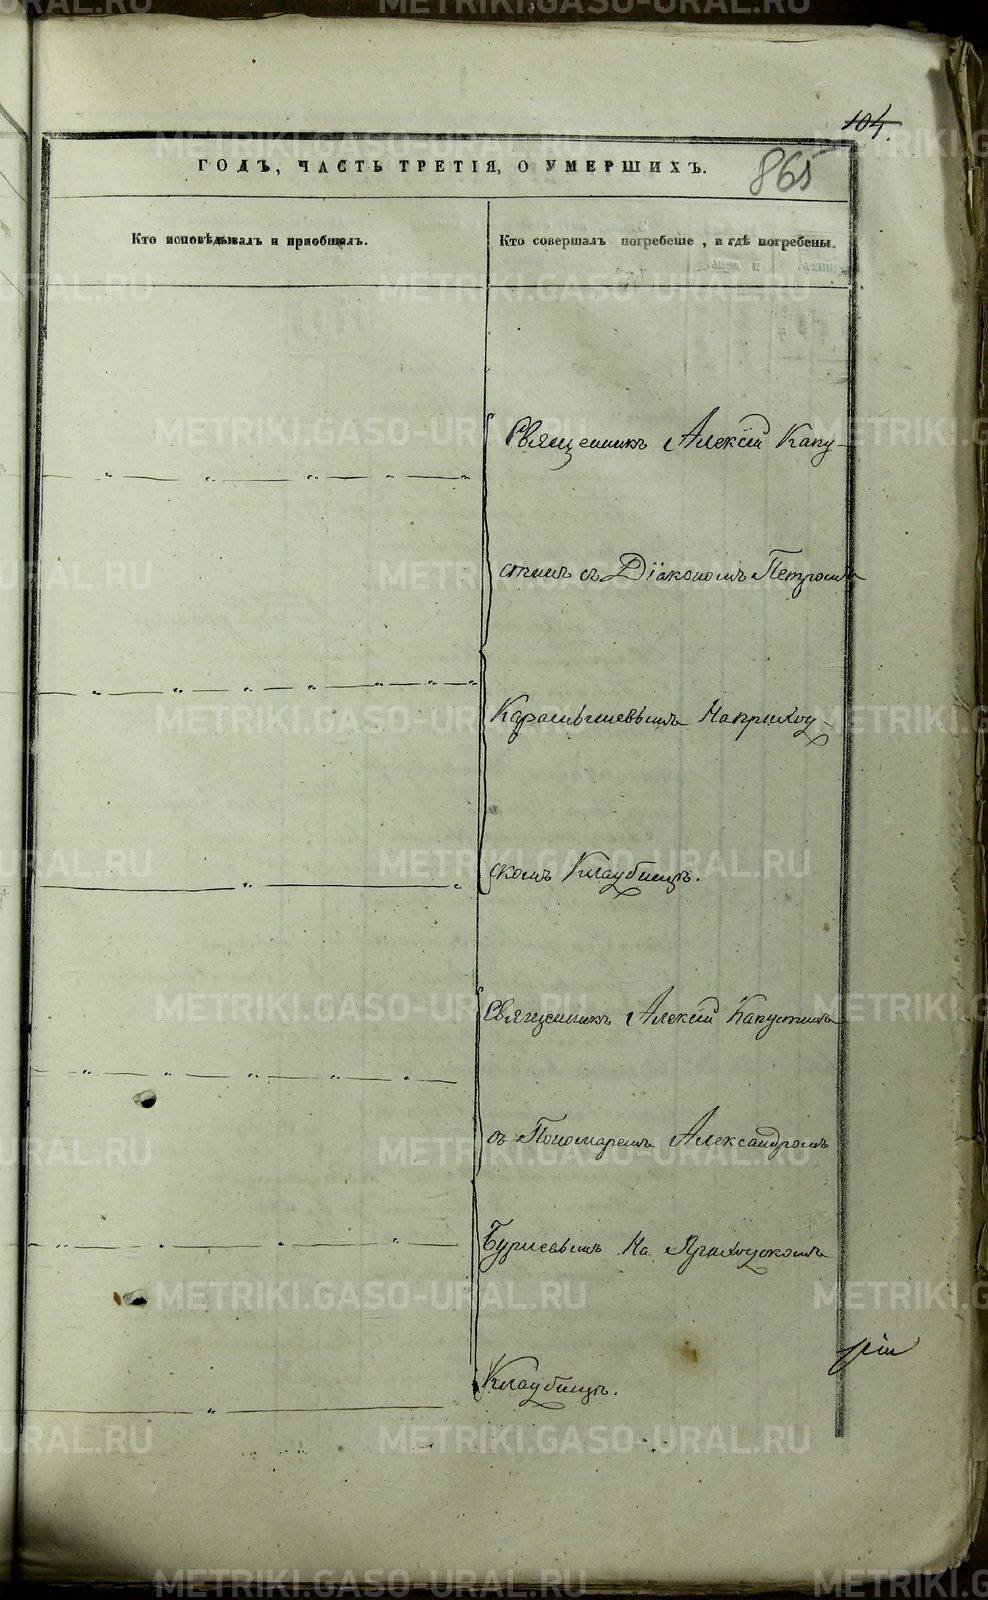 104.
865
ГОДЪ, ЧАСТЬ ТРЕТІЯ, О УМЕРШИХЪ.
Кто исповѣдывалъ и приобщалъ.
Кто совершалъ погребеніе, и гдѣ погребены.
Священникъ Алексій Капу-
стинъ съ Діакономъ Петромъ
На приход-
скомъ Кладбищѣ.
Священникъ Алексій Капустинъ
съ Пономаремъ Александромъ
на Приходскомъ
Кладбищѣ.
METRIKI.GASO-URAL.RU